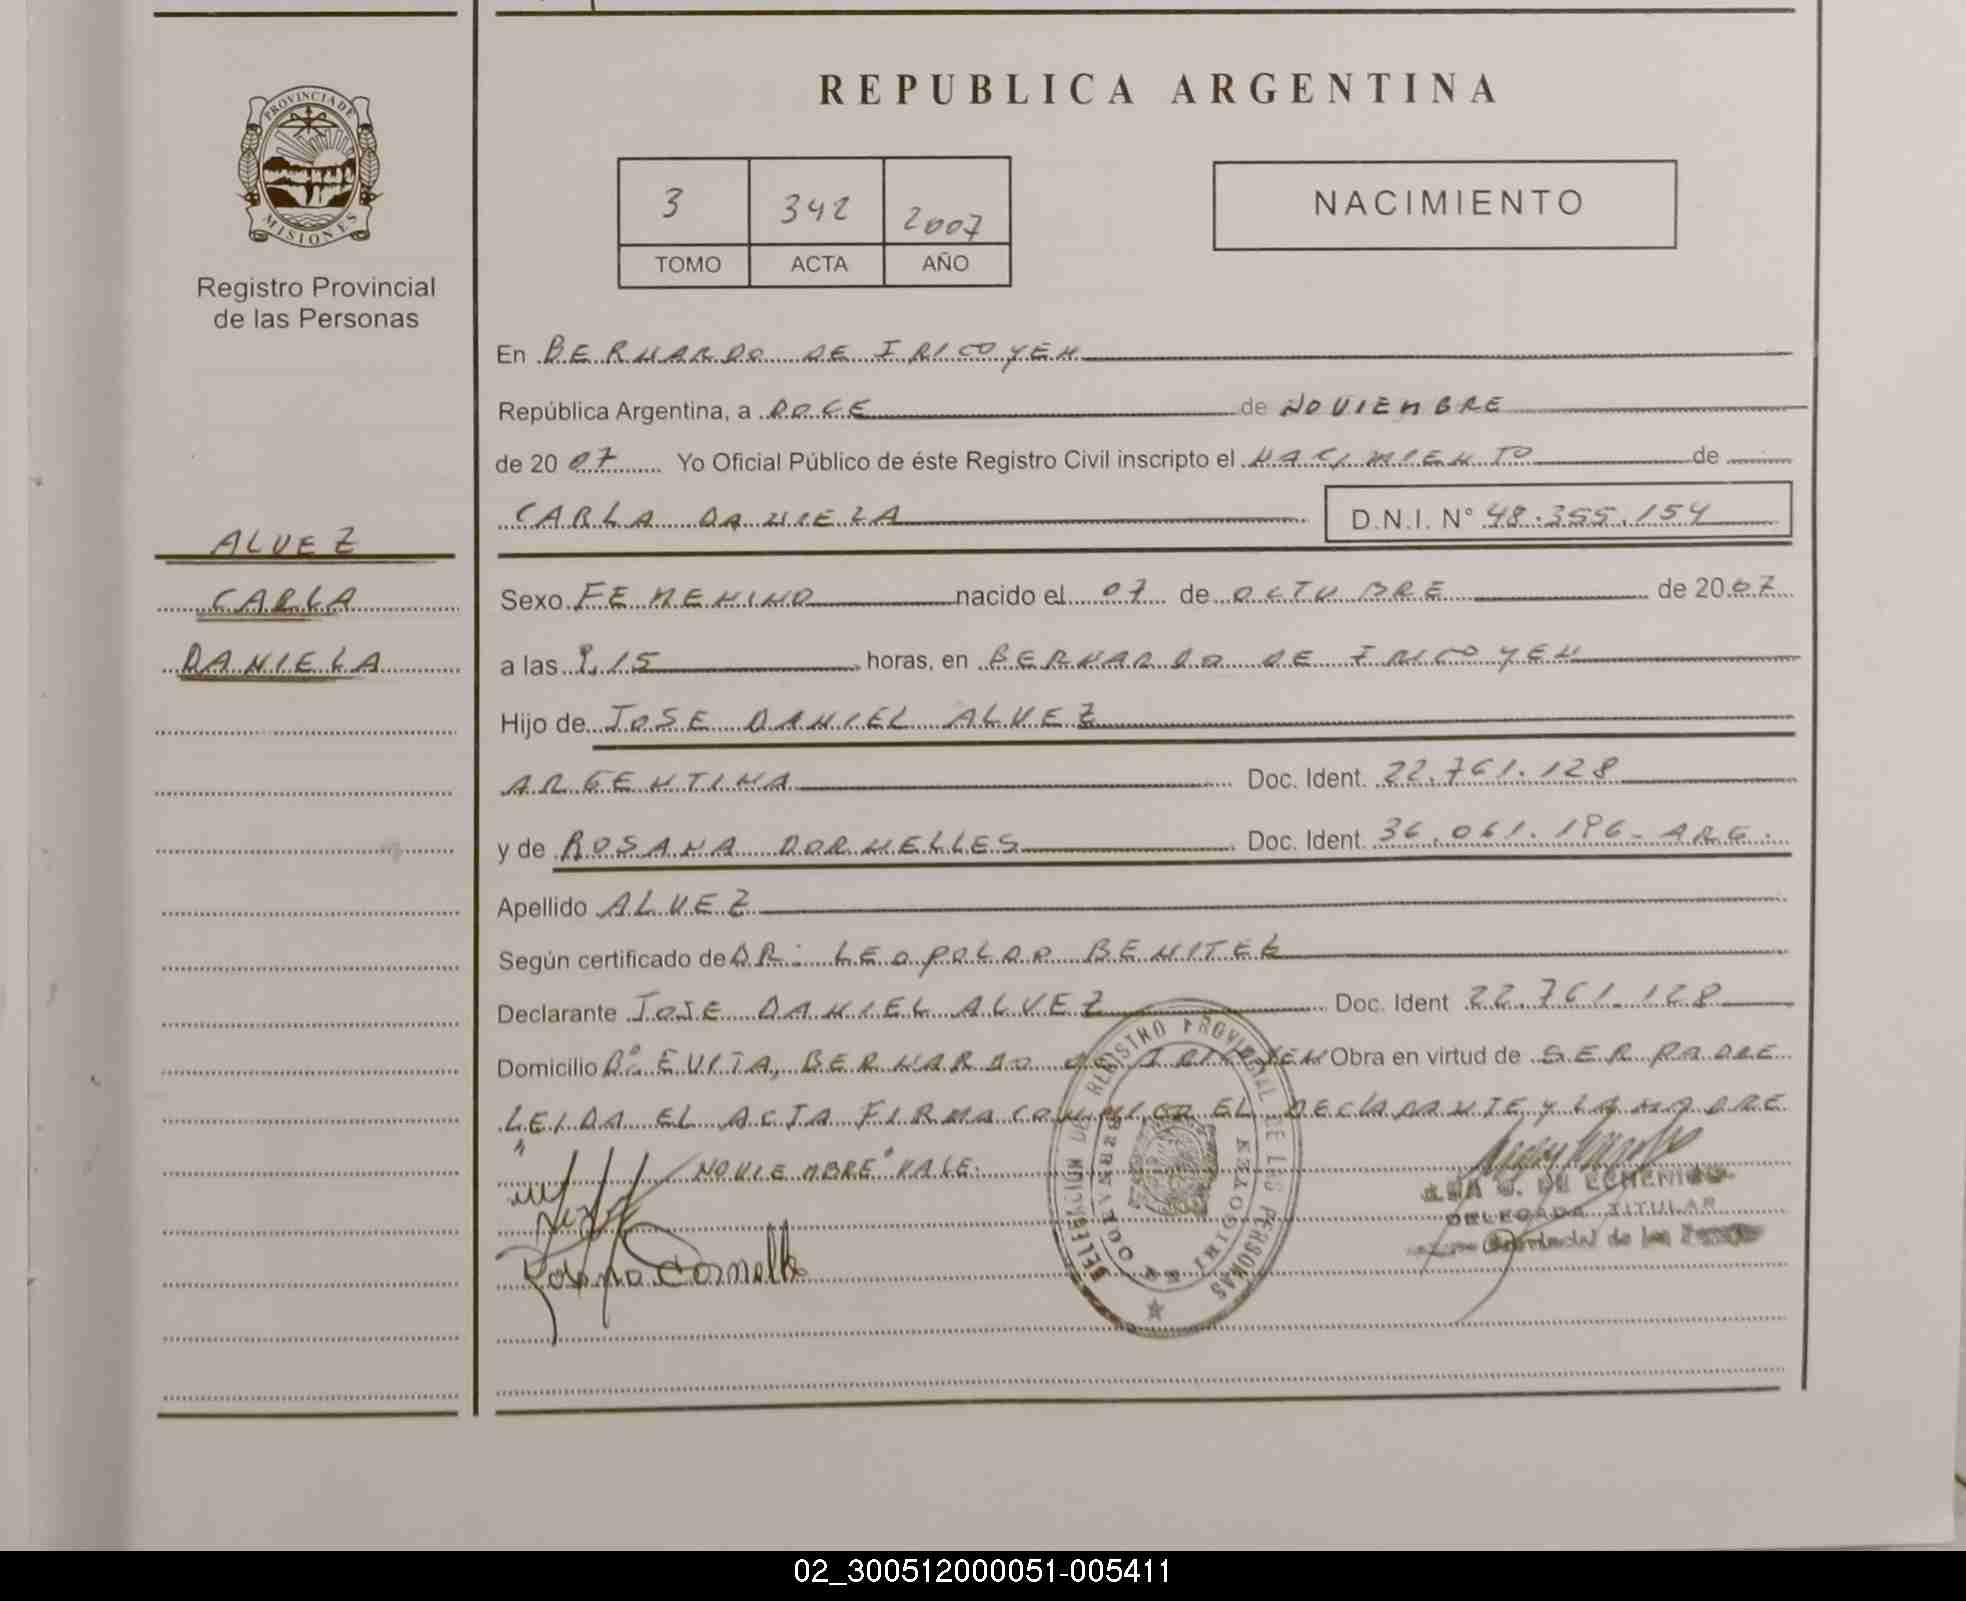 REPUBLICA ARGENTINA
PROVINCIA DE
MISIONES
Registro Provincial
de las Personas
3 342 2007
TOMO ACTA AÑO
NACIMIENTO
En BERNARDO DE IRIGOYEN
República Argentina, a DOCE de NOVIEMBRE
de 20 07 Yo Oficial Público de éste Registro Civil inscripto el NACIMIENTO de
CARLA DANIELA D.N.I. N° 48.355.154
ALVEZ
CARLA
DANIELA
Sexo FEMENINO nacido el 07 de OCTUBRE de 20 07
a las 9,15 horas, en BERNARDO DE IRIGOYEN
Hijo de JOSE DANIEL ALVEZ
ARGENTINA Doc. Ident. 22.761.128
y de ROSANA DORNELLES Doc. Ident. 36.061.196- ARG.
Apellido ALVEZ
Según certificado de DR: LEOPOLDO BENITEZ
Declarante JOSE DANIEL ALVEZ Doc. Ident 22.761.128
Domicilio B° EVITA, BERNARDO DE IRIGOYEN Obra en virtud de SER PADRE
LEIDA EL ACTA FIRMA CONMIGO EL DECLARANTE Y LA MADRE
"NOVIEMBRE" VALE.
Rosana Dornelle
DELEGACION DEL REGISTRO PROVINCIAL DE LAS PERSONAS
BERNARDO DE IRIGOYEN
DE ECHENIQUE
DELEGADA TITULAR
02_300512000051-005411